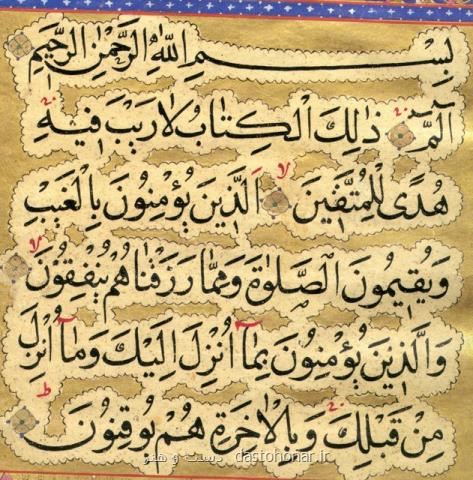 بِسْمِ اللّٰهِ الرَّحْمٰنِ الرَّحِيمِ
الٓمّٓ ذٰلِكَ الْكِتَابُ لَا رَيْبَ فِيهِ
هُدًى لِلْمُتَّقِينَ الَّذِينَ يُؤْمِنُونَ بِالْغَيْبِ
وَيُقِيمُونَ الصَّلٰوةَ وَمِمَّا رَزَقْنَاهُمْ يُنْفِقُونَ
وَالَّذِينَ يُؤْمِنُونَ بِمَٓا اُنْزِلَ اِلَيْكَ وَمَٓا اُنْزِلَ
مِنْ قَبْلِكَ وَبِالْاٰخِرَةِ هُمْ يُوقِنُونَ
دست و هنر dastohonar.ir